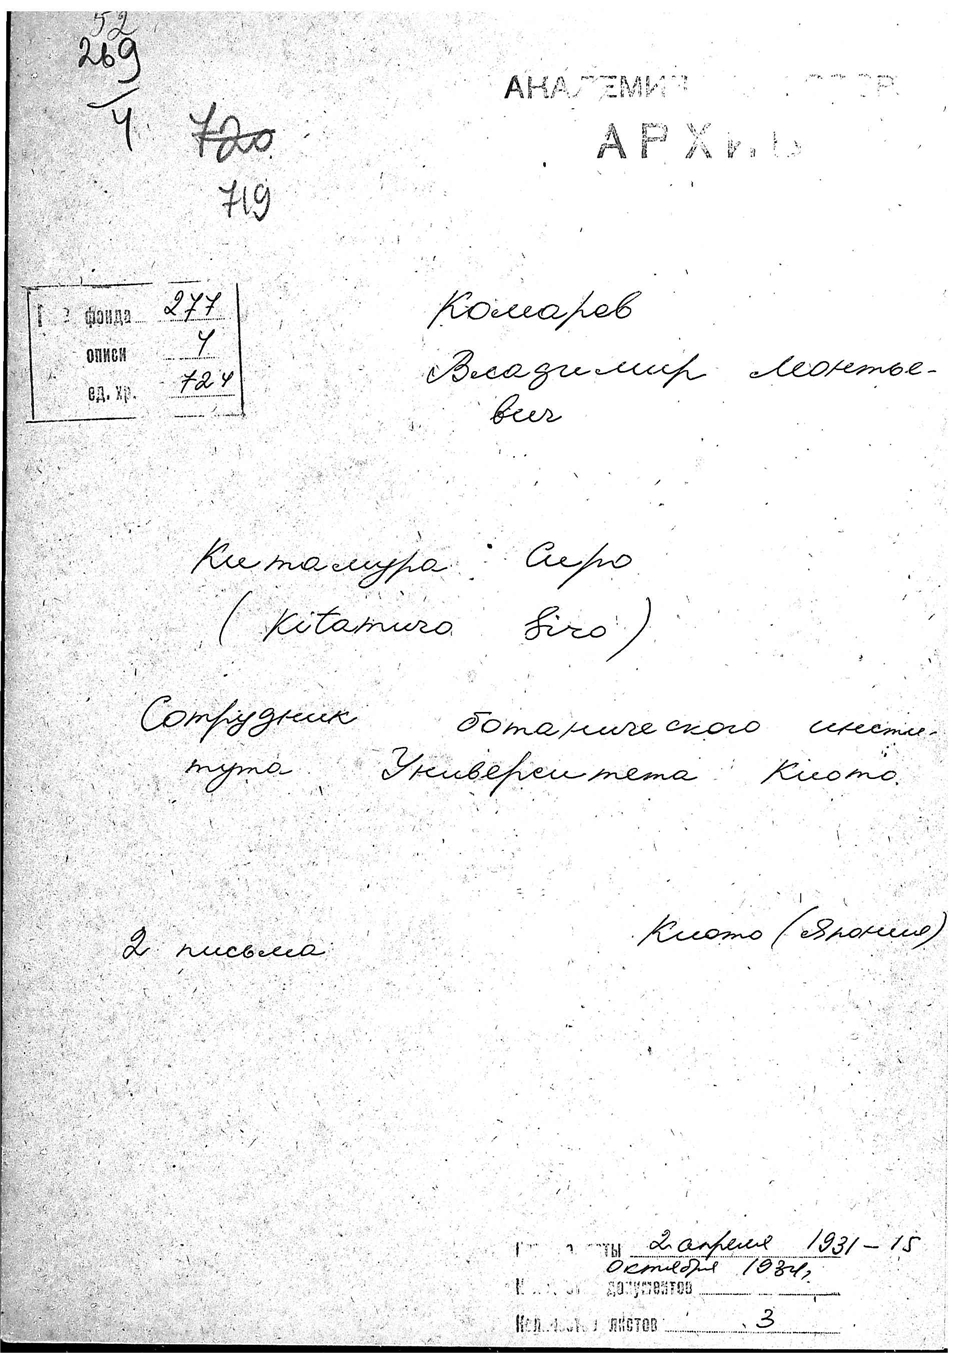 52
269
4
720
719
АКАДЕМИЯ СССР
АРХИВ
№ фонда 277
описи 4
ед. хр. 724
Комаров
Владимир Леонтье-
вич
Китамура Сиро
(Kitamura Siro)
Сотрудник ботанического инсти-
тута Университета Киото
2 письма
Киото (Япония)
даты 2 апреля 1931 – 15
октября 1934г.
документов
Количество листов 3